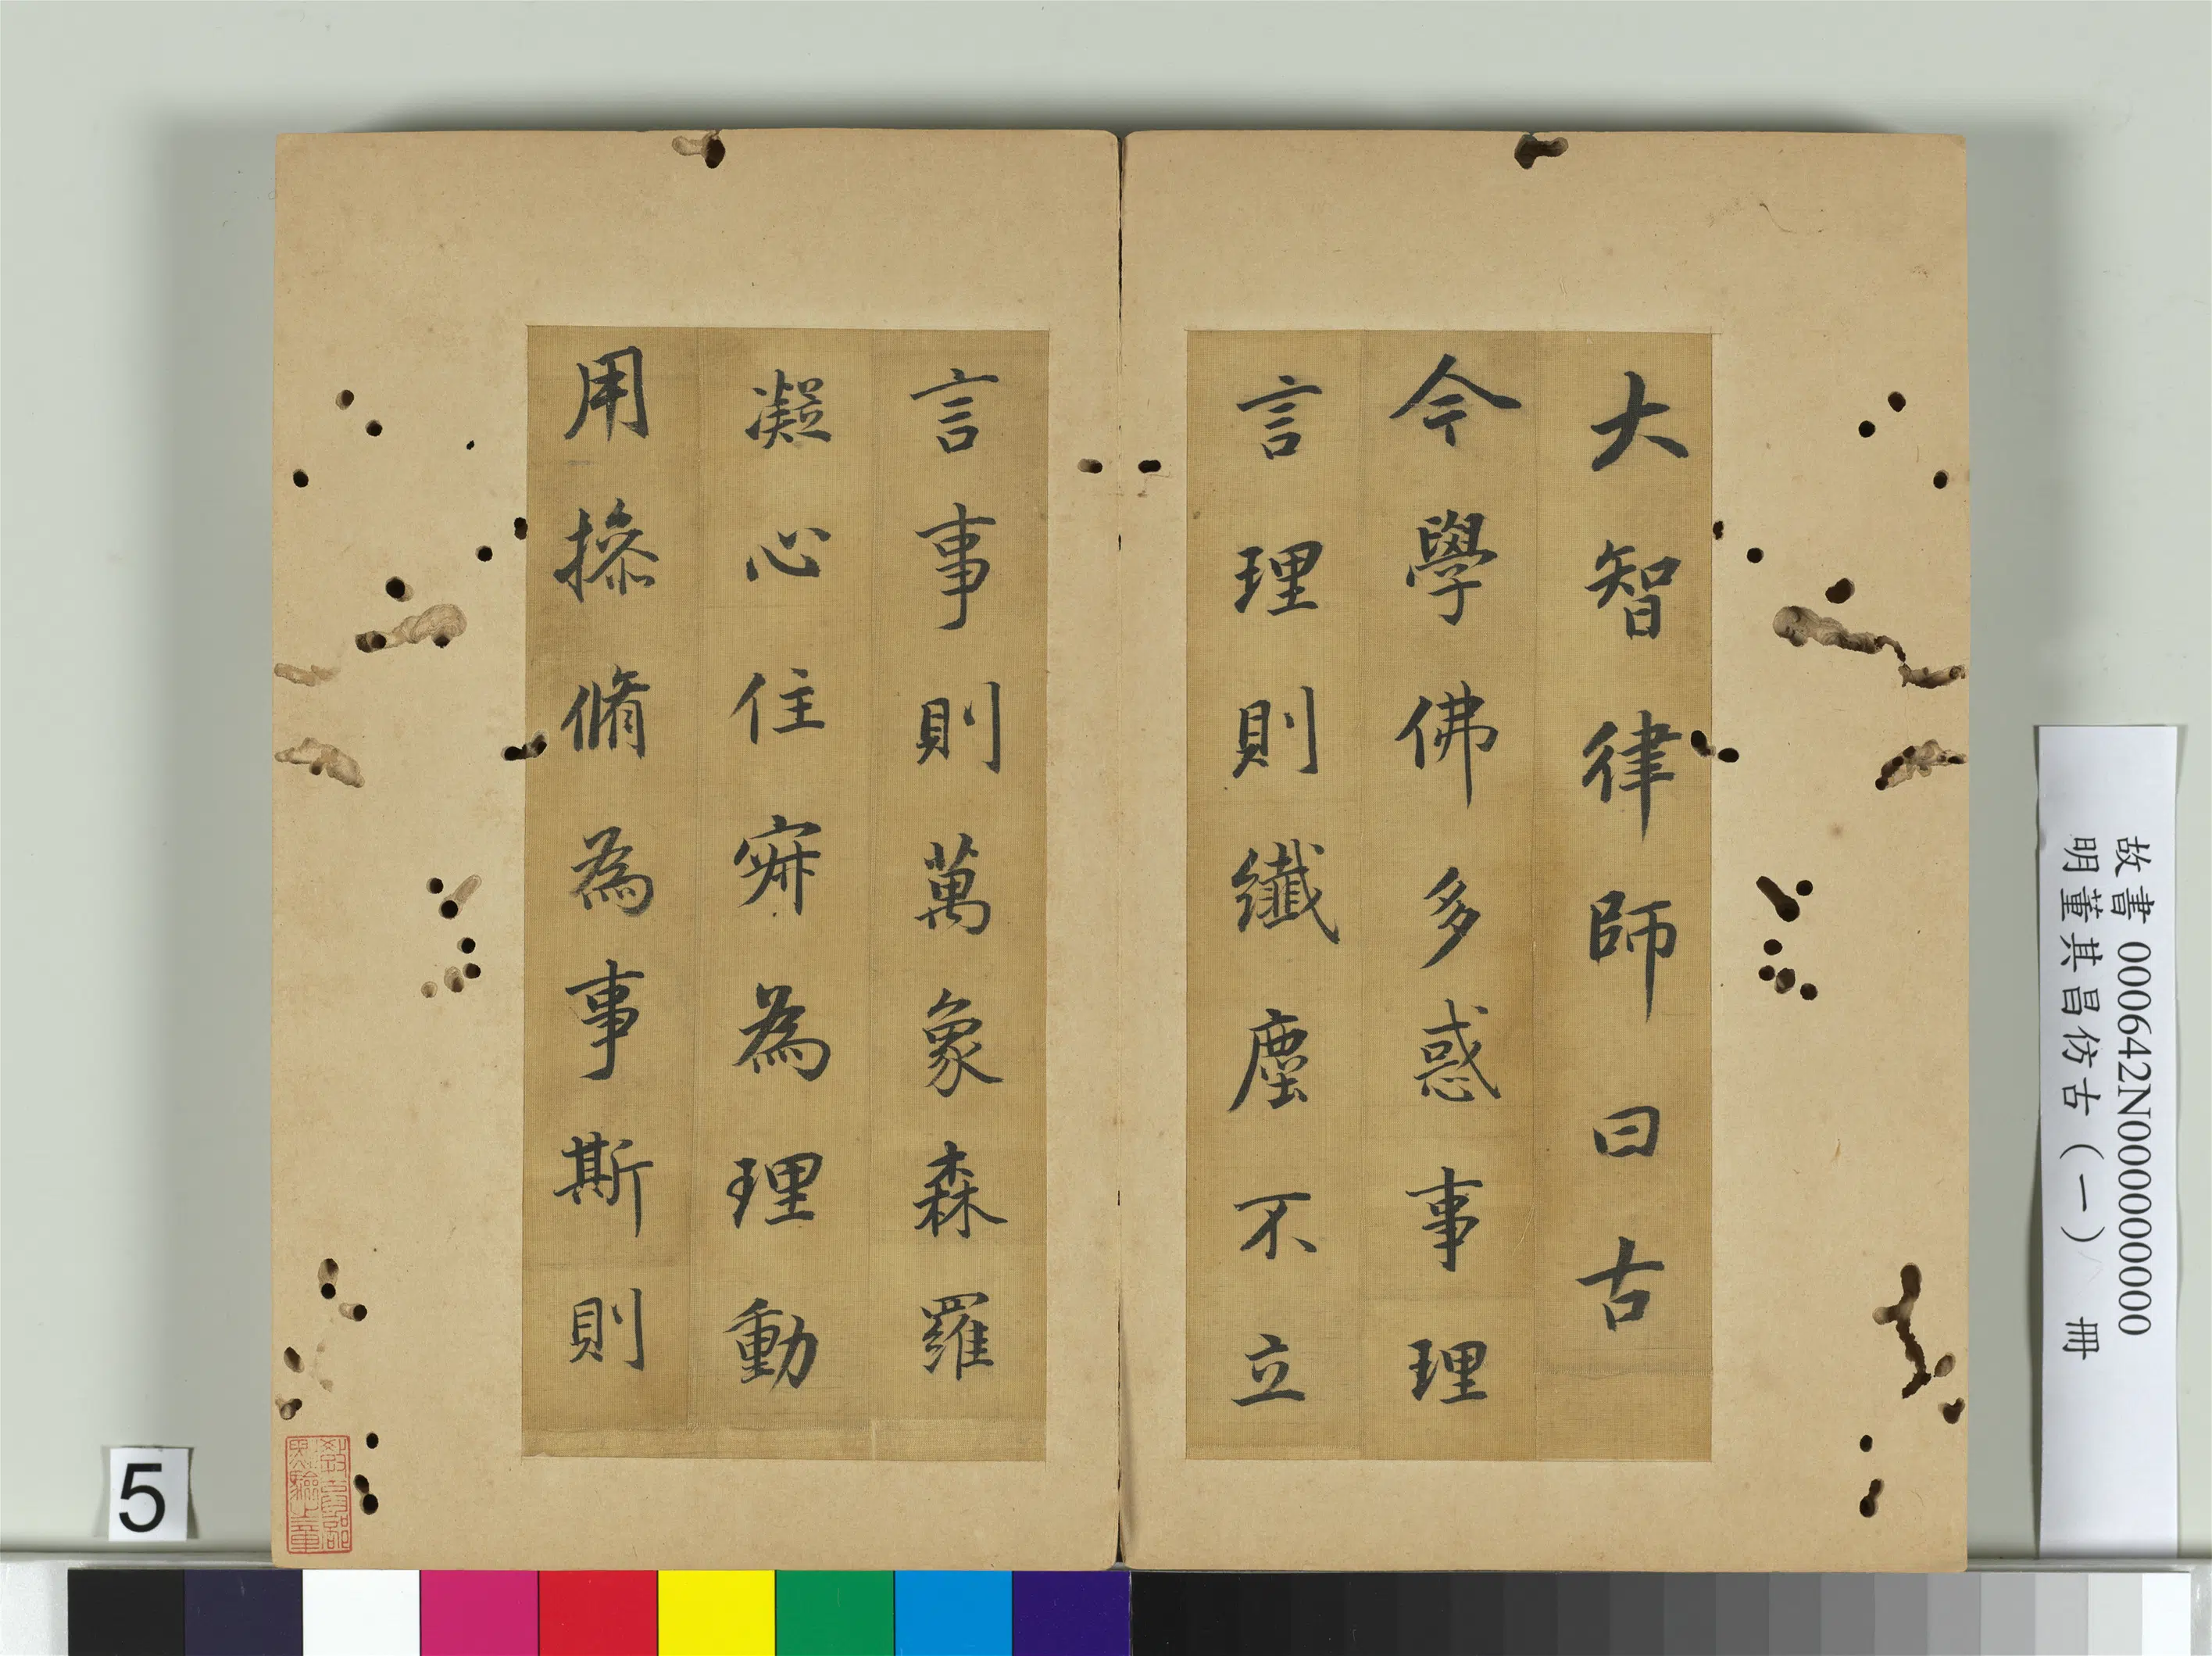 大智律師曰古
今學佛多惑事理
言理則纖塵不立
言事則萬象森羅
凝心住寂為理動
用操脩為事斯則
故書 000642N000000000
明董其昌仿古(一) 冊
5
教育部
點驗之章